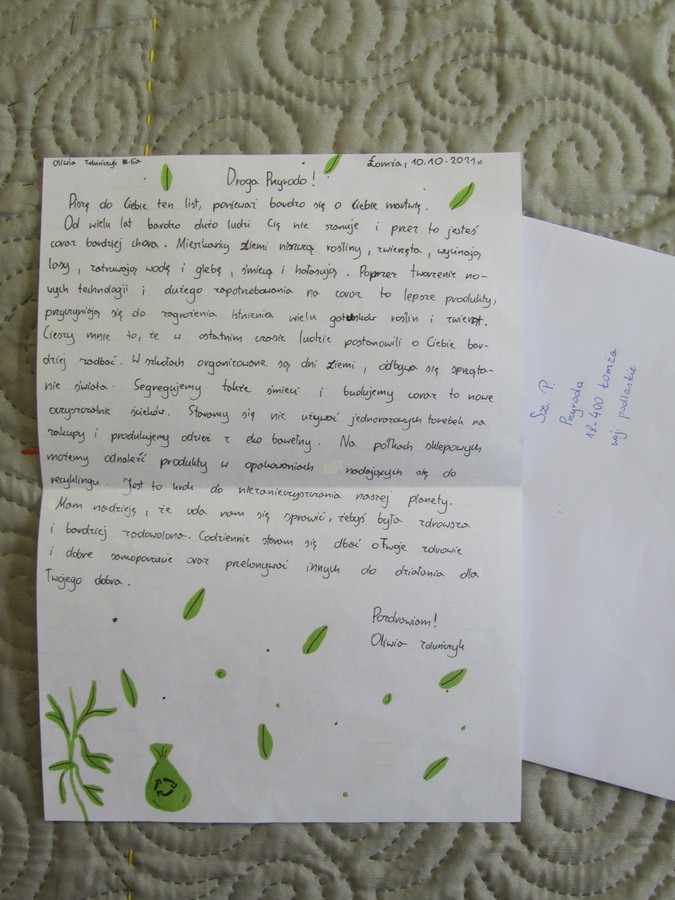 Oliwia kl. 6a
Łomża, 10.10.2021 r.
Droga Przyrodo!
Piszę do Ciebie ten list, ponieważ bardzo się o Ciebie martwię.
Od wielu lat bardzo dużo ludzi Cię nie szanuje i przez to jesteś
coraz bardziej chora. Mieszkańcy Ziemi niszczą rośliny, zwierzęta, wycinają
lasy, zatruwają wodę i glebę, śmiecą i hałasują. Poprzez tworzenie no-
wych technologii i dużego zapotrzebowania na coraz to lepsze produkty,
przyczyniają się do zagrożenia istnienia wielu gatunków roślin i zwierząt.
Cieszy mnie to, że w ostatnim czasie ludzie postanowili o Ciebie bar-
dziej zadbać. W szkołach organizowane są dni Ziemi, odbywa się sprząta-
nie świata. Segregujemy także śmieci i budujemy coraz to nowe
oczyszczalnie ścieków. Staramy się nie używać jednorazowych torebek na
zakupy i produkujemy odzież z eko bawełny. Na półkach sklepowych
możemy odnaleźć produkty w opakowaniach nadających się do
recyklingu. Jest to krok do niezanieczyszczania naszej planety.
Mam nadzieję, że uda nam się sprawić, żebyś była zdrowsza
i bardziej zadowolona. Codziennie staram się dbać o Twoje zdrowie
i dobre samopoczucie oraz przekonywać innych do działania dla
Twojego dobra.
Pozdrawiam!
Oliwia
Sza. P.
Przyroda
18-400 Łomża
woj. podlaskie